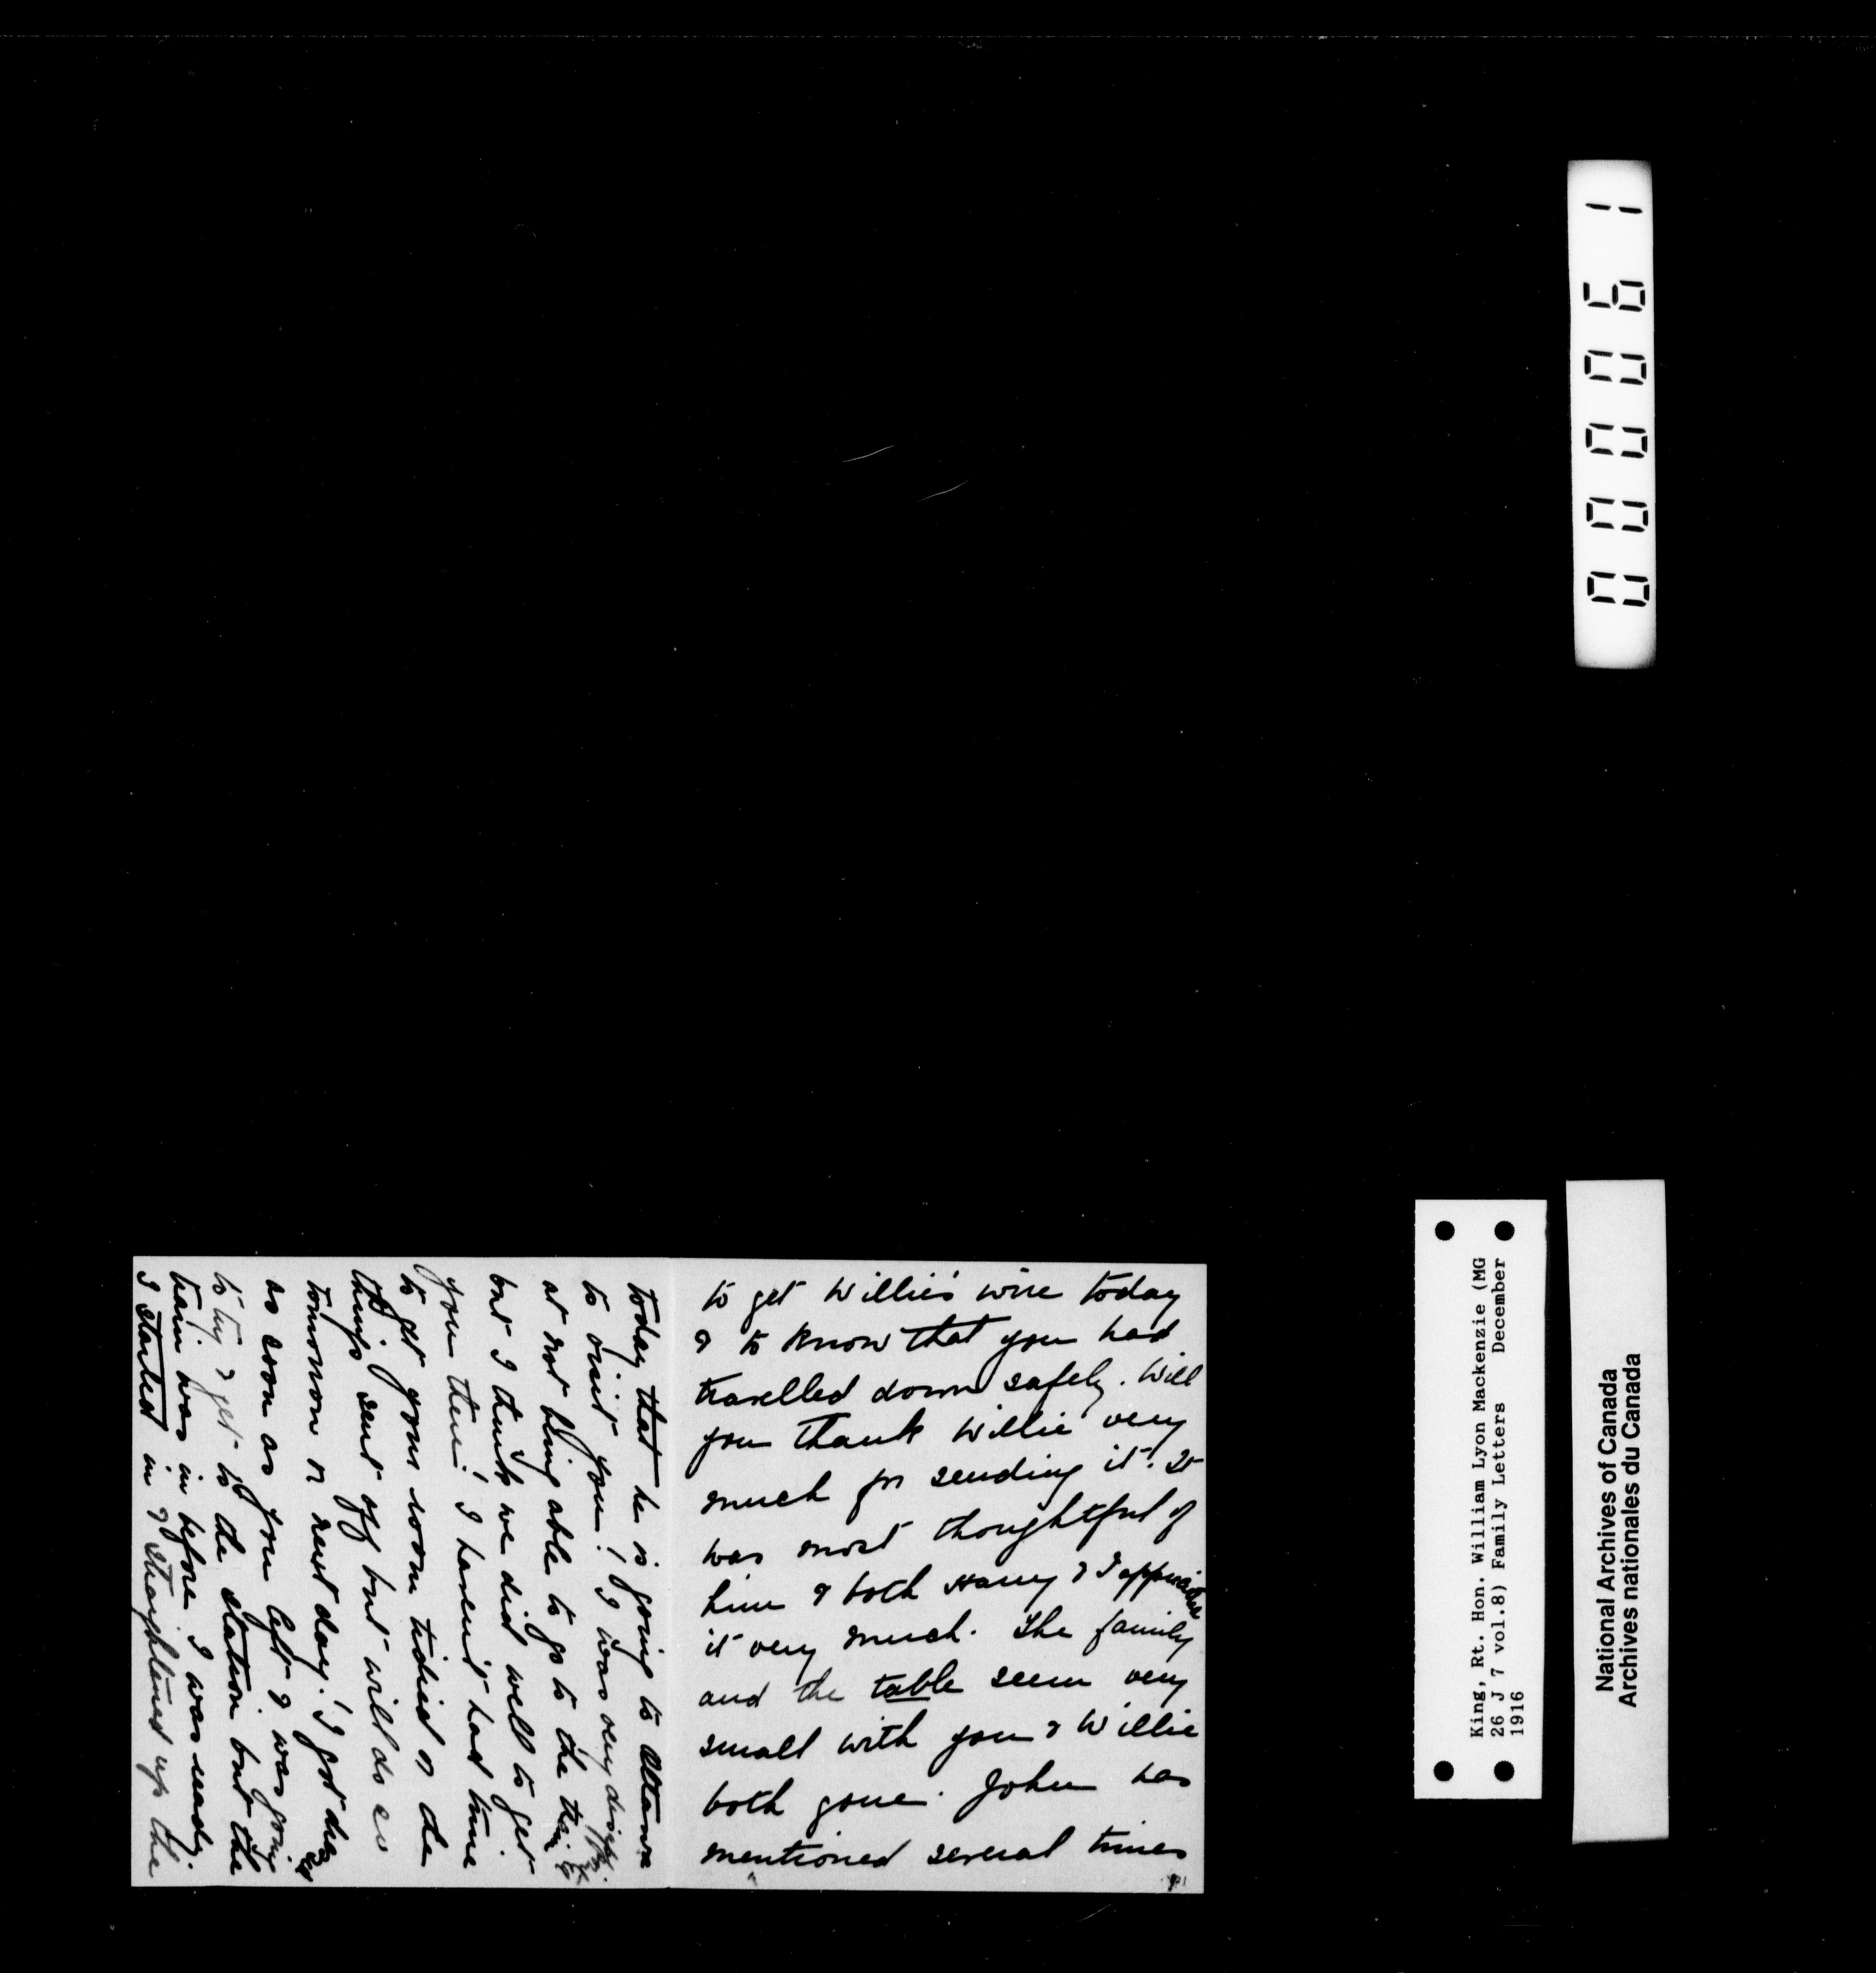 to get Willie's wire today
& to know that you had
travelled down safely. Will
you thank Willie very
much for sending it. It
was most thoughtful of
him & both Harry & I appreciate
it very much. The family
and the table seem very
small with you & Willie
both gone. John has
mentioned several times
today that he is going to Ottawa
to visit you! I was very
at not being able to go to the train
but I think we did well to get
you there! I haven't had time
to get your room tidied or the
things sent off but will do so
tomorrow or next day. I got dressed
as soon as you left & was going
to try & get to the station but the
train was in before I was ready.
I started in & straightened up the
King, Rt. Hon. William Lyon Mackenzie (MG
26 J 7 vol.8) Family Letters December
1916
National Archives of Canada
Archives nationales du Canada
0000061